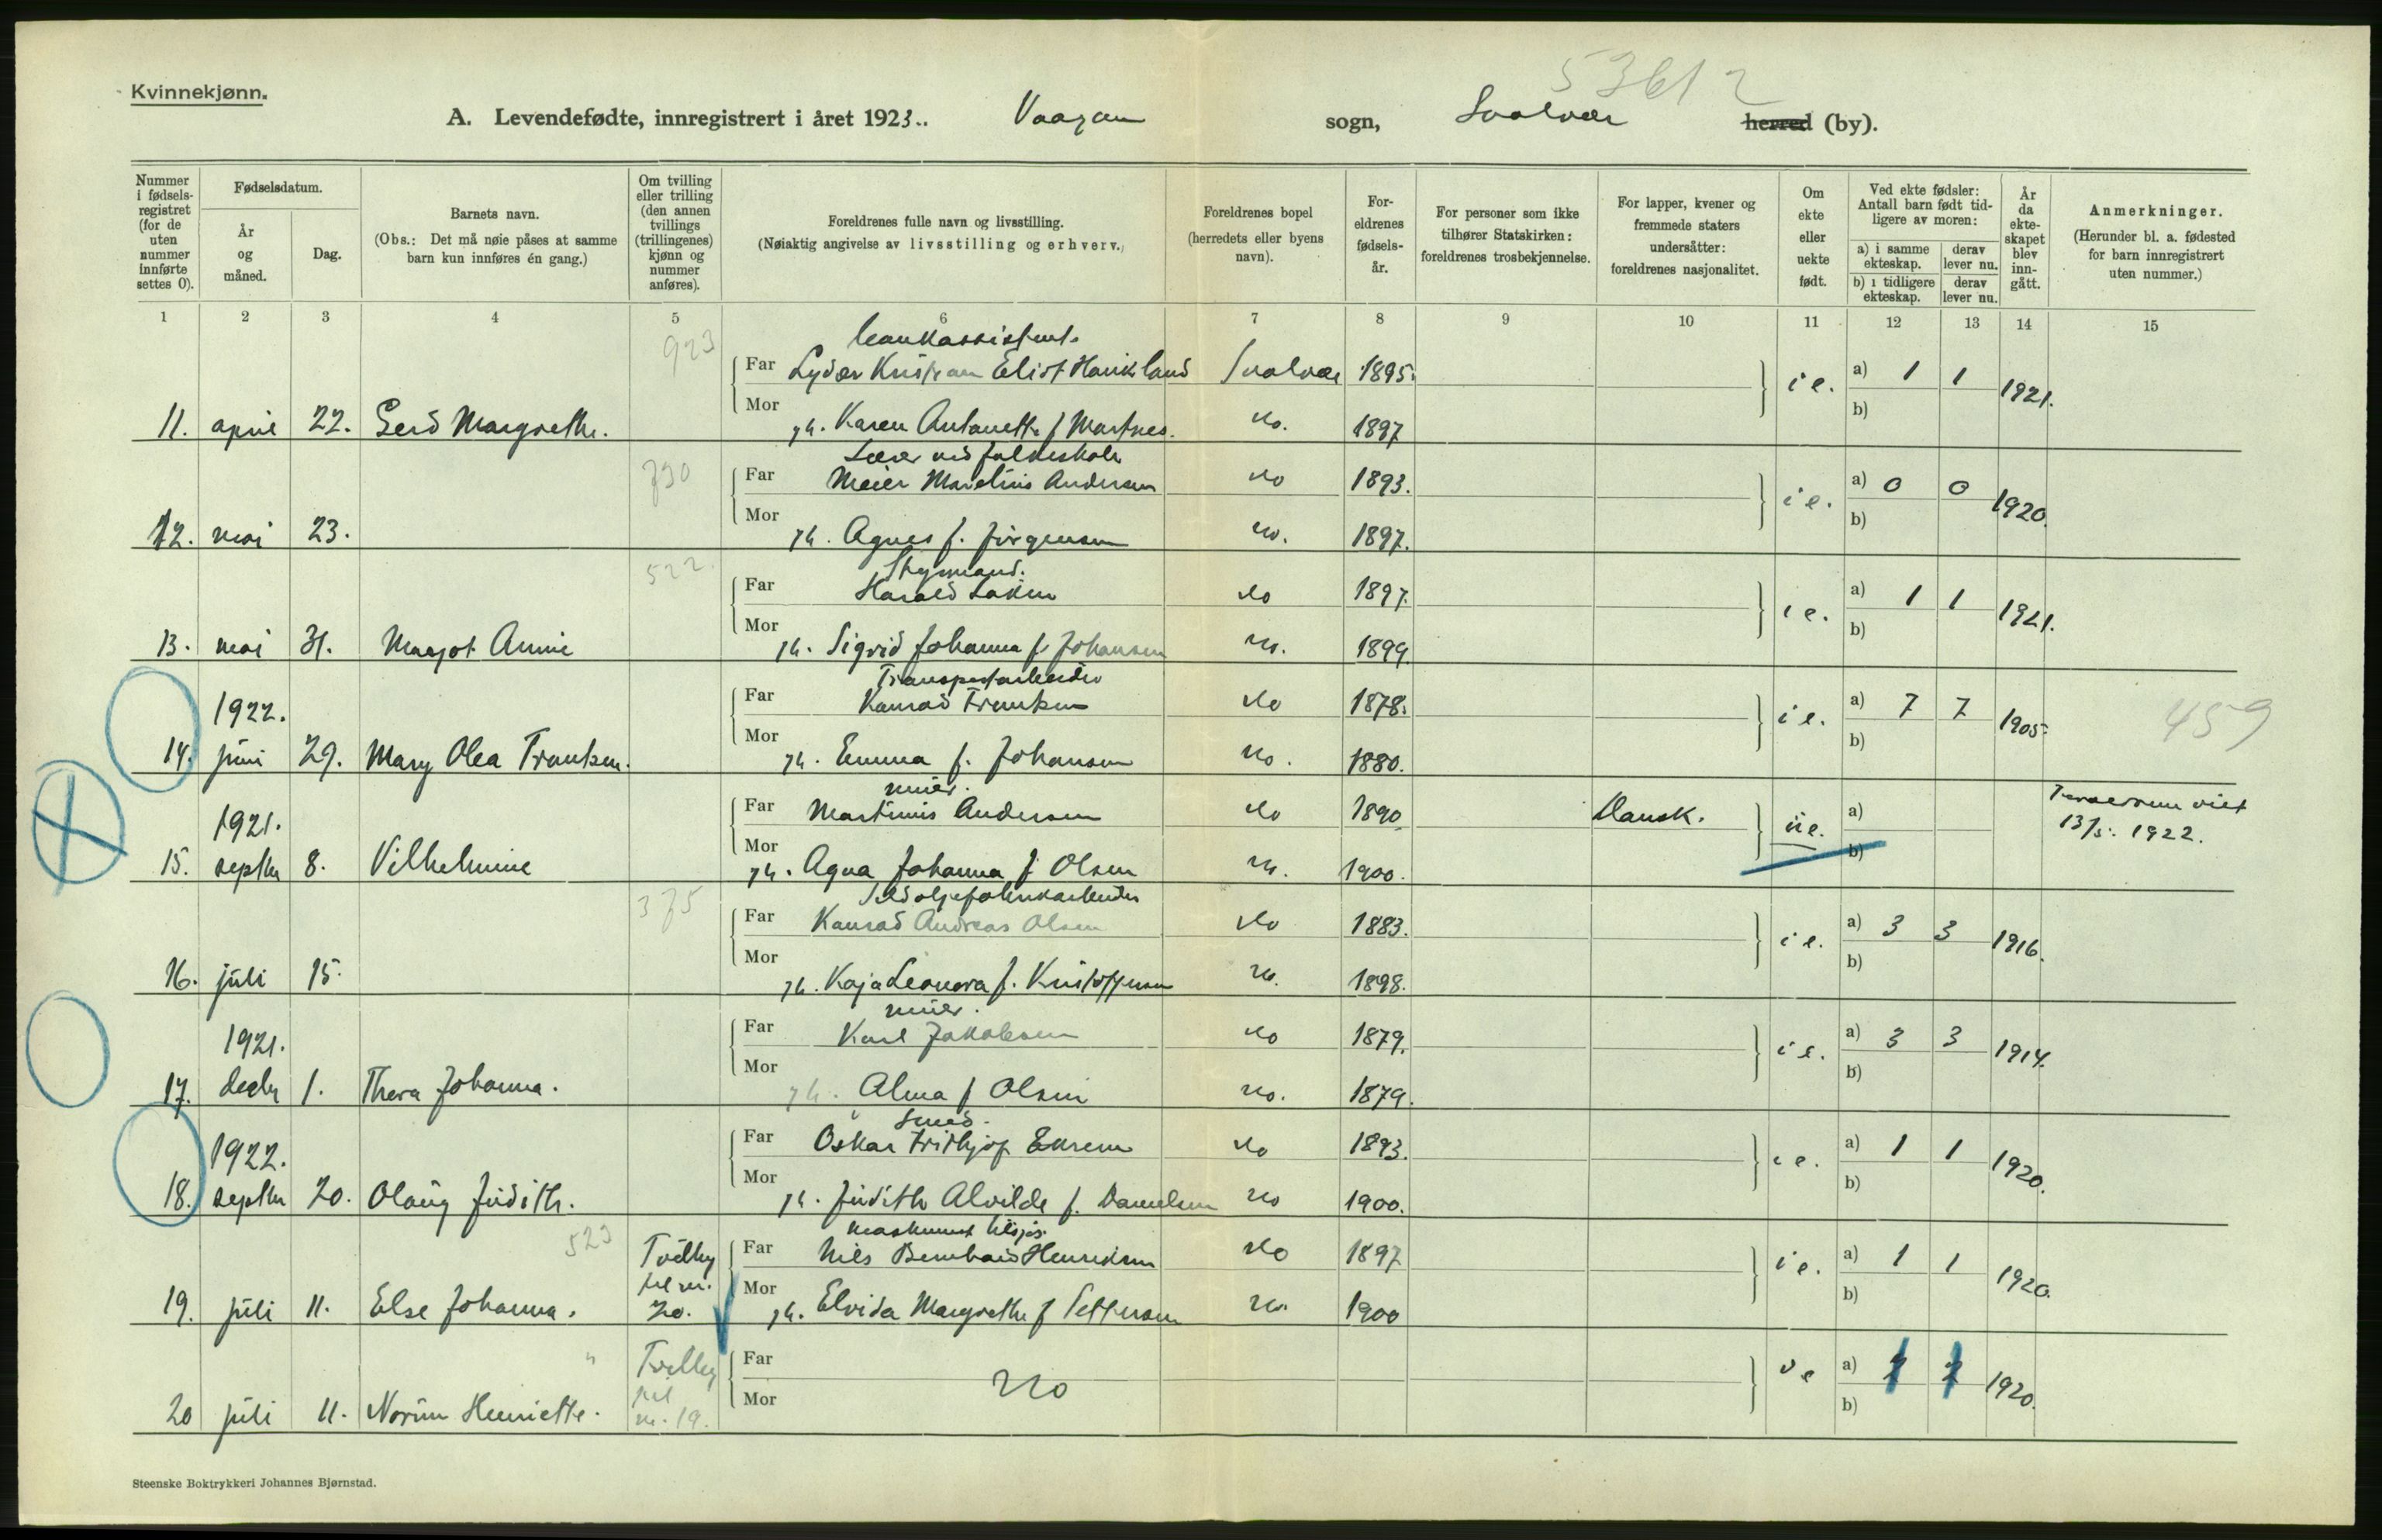 Kvinnekjønn.
53612
A. Levendefødte, innregistrert i året 1923.. Vaagan sogn, Svolvær herred (by).
Nummer i fødsels-registret (for de uten nummer innførte settes 0).
Fødselsdatum.
År og måned.
Dag.
Barnets navn.
(Obs.: Det må nøie påses at samme barn kun innføres én gang.)
Om tvilling eller trilling (den annen tvillings (trillingenes) kjønn og nummer anføres).
Foreldrenes fulle navn og livsstilling.
(Nøiaktig angivelse av livsstilling og erhverv.)
Foreldrenes bopel (herredets eller byens navn).
For-eldrenes fødsels-år.
For personer som ikke tilhører Statskirken: foreldrenes trosbekjennelse.
For lapper, kvener og fremmede staters undersåtter: foreldrenes nasjonalitet.
Om ekte eller uekte født.
Ved ekte fødsler: Antall barn født tid-ligere av moren:
a) i samme ekteskap.
derav lever nu.
b) i tidligere ekteskap.
derav lever nu.
År da ekte-skapet blev inn-gått.
Anmerkninger.
(Herunder bl. a. fødested for barn innregistrert uten nummer.)
1 2 3 4 5 6 7 8 9 10 11 12 13 14 15
923
bankassistent.
Far Lyder Kristian Eliot Haukland Svolvær 1895. i e. a) 1 1 1921.
11. april 22. Gerd Margrethe. Mor gh. Karen Antonette f Martnes. do. 1897 b)
Lærer ved folkeskole
790 Far Meier Marelius Andersen do 1893. i e. a) 0 0 1920.
12. mai 23. Mor gh. Agnes f. Jørgensen do. 1897. b)
Styrmand.
522. Far Harald do 1897. i e. a) 1 1 1921.
13. mai 31. Margot Annie Mor gh. Sigrid Johanna f. Johansen do. 1899. b)
Transportarbeider
1922. Far Konrad do 1878. i e. a) 7 7 1905. 459
14. juni 29. Mary Olea Mor gh. Emma f. Johansen do. 1880. b)
1921. Far Martinus Andersen do 1890 Dansk. u e. a) viet 13/5. 1922.
15. septbr 8. Vilhelmine Mor gh. Agna Johanna f Olsen do. 1900. b)
Sildoljefabrikarbeider
375 Far Konrad Andreas Olsen do 1883. i e. a) 3 3 1916.
16. juli 15. Mor gh. Kaja Leonora f. Kristoffersen do. 1898. b)
1921. Far Karl Jakobsen do 1879. i e. a) 3 3 1914.
17. decbr 1. Thora Johanna. Mor gh. Alma f Olsen do. 1879. b)
Smed.
1922. Far Oskar Frithjof do 1893. i e. a) 1 1 1920.
18. septbr 20. Olaug Judith. Mor gh. Judith Alvilde f. Danielsen do 1900. b)
523 Tvilling til nr. 20. Far Nils Bernhard Henriksen do 1897 i e. a) 1 1 1920.
19. juli 11. Else Johanna. Mor gh. Elvida Margrethe f Pettersen do. 1900 b)
" Tvilling til nr. 19. Far do a) 1920.
20 juli 11. Henriette. Mor b)
Steenske Boktrykkeri Johannes Bjørnstad.